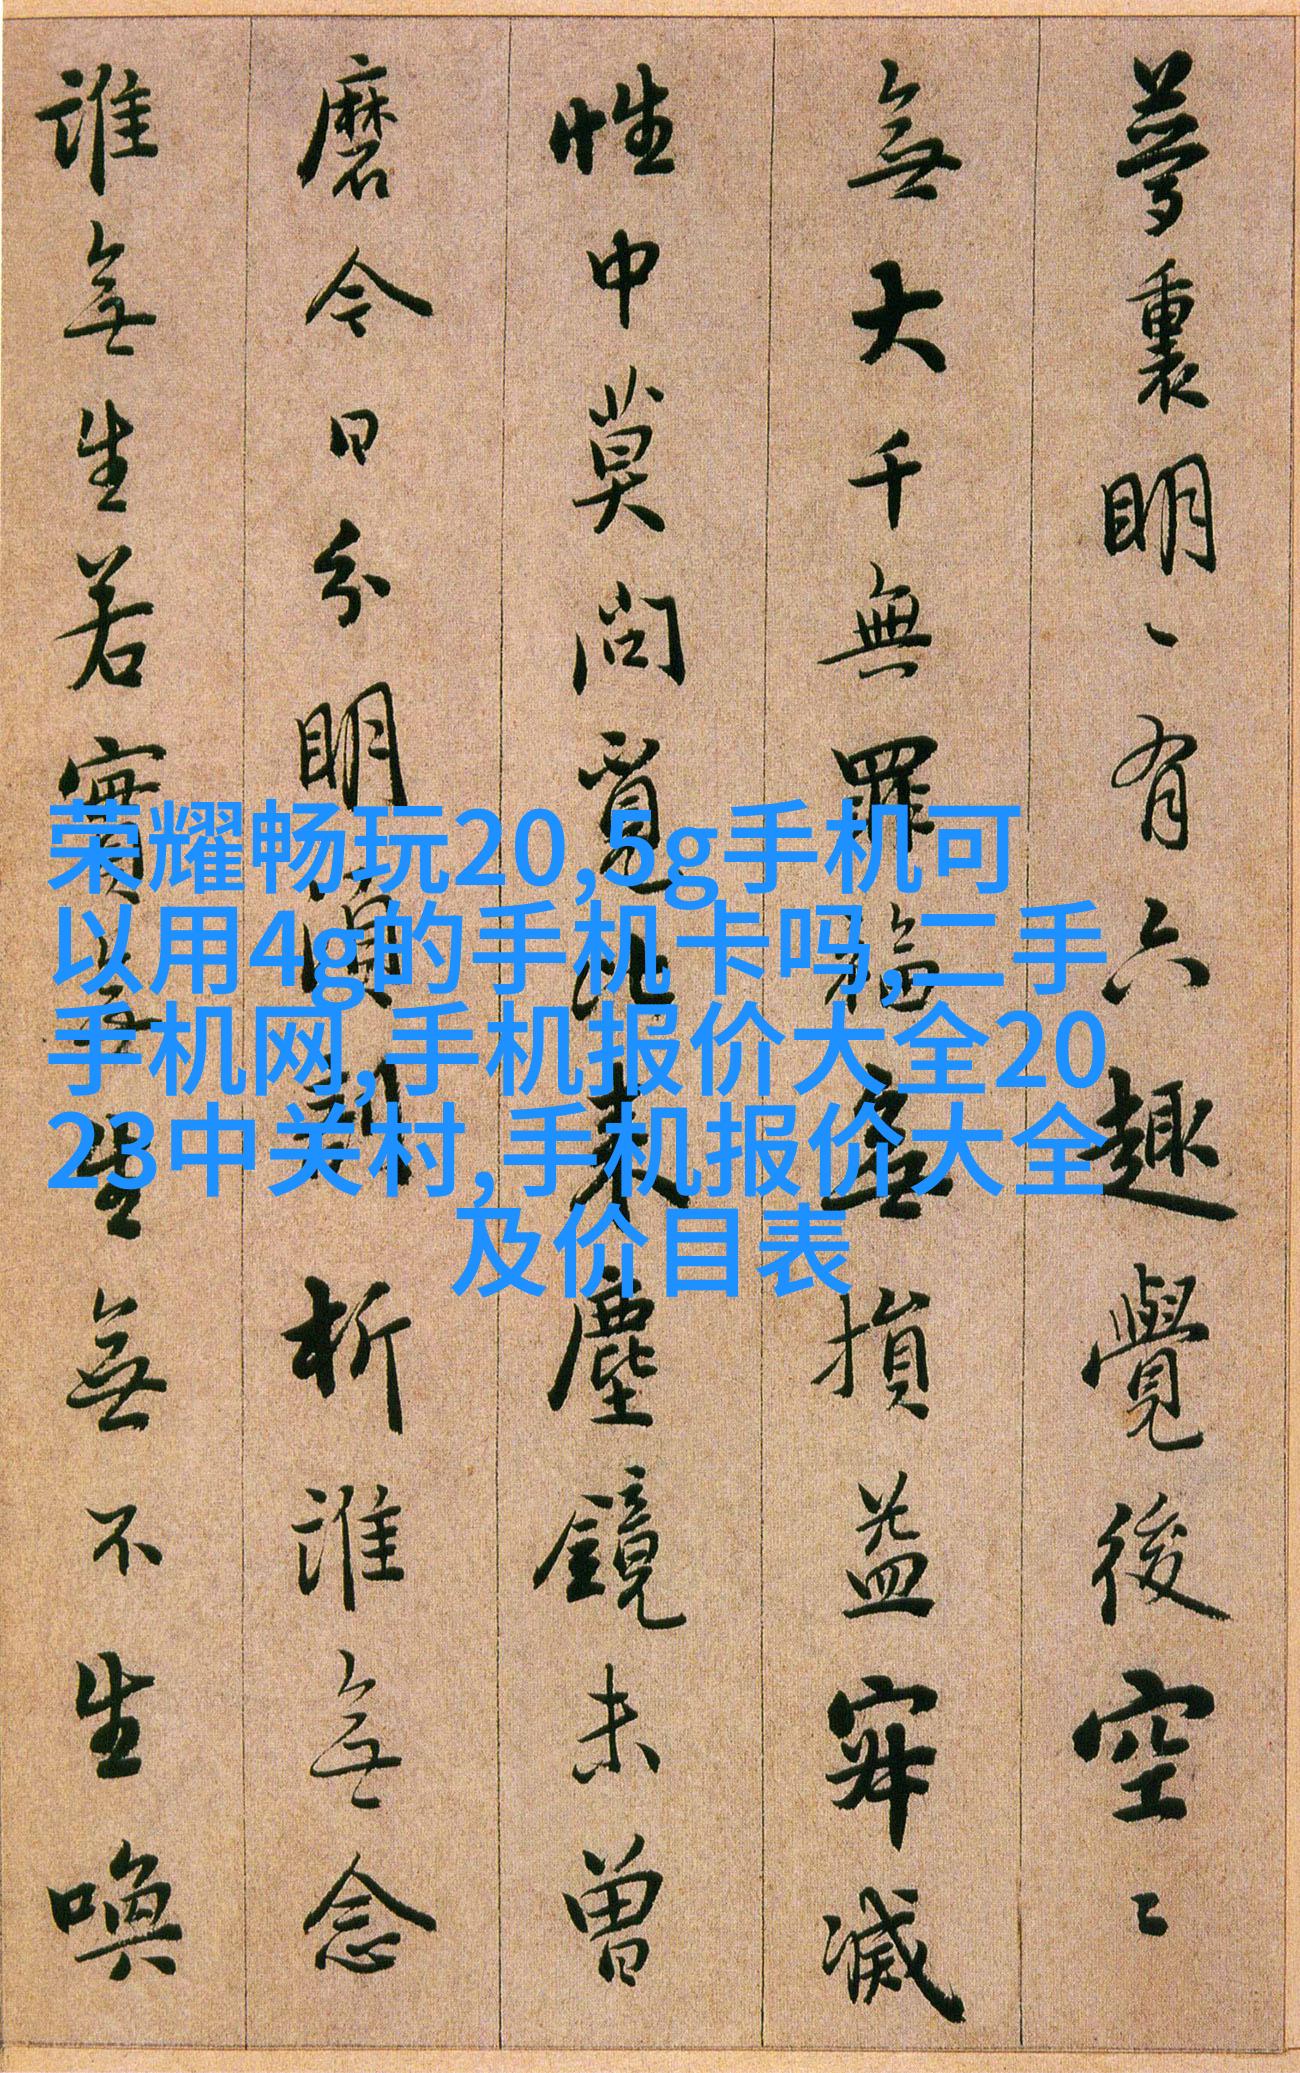 夢裏明、有六趣覺後空〻
無大千無罪福無損益寂滅
性中莫問覓比来塵鏡未曽
磨今日分明須剖析誰無念
誰無生若實無生無不生喚
荣耀畅玩20,5g手机可
以用4g的手机卡吗,二手
手机网,手机报价大全20
23中关村,手机报价大全
及价目表